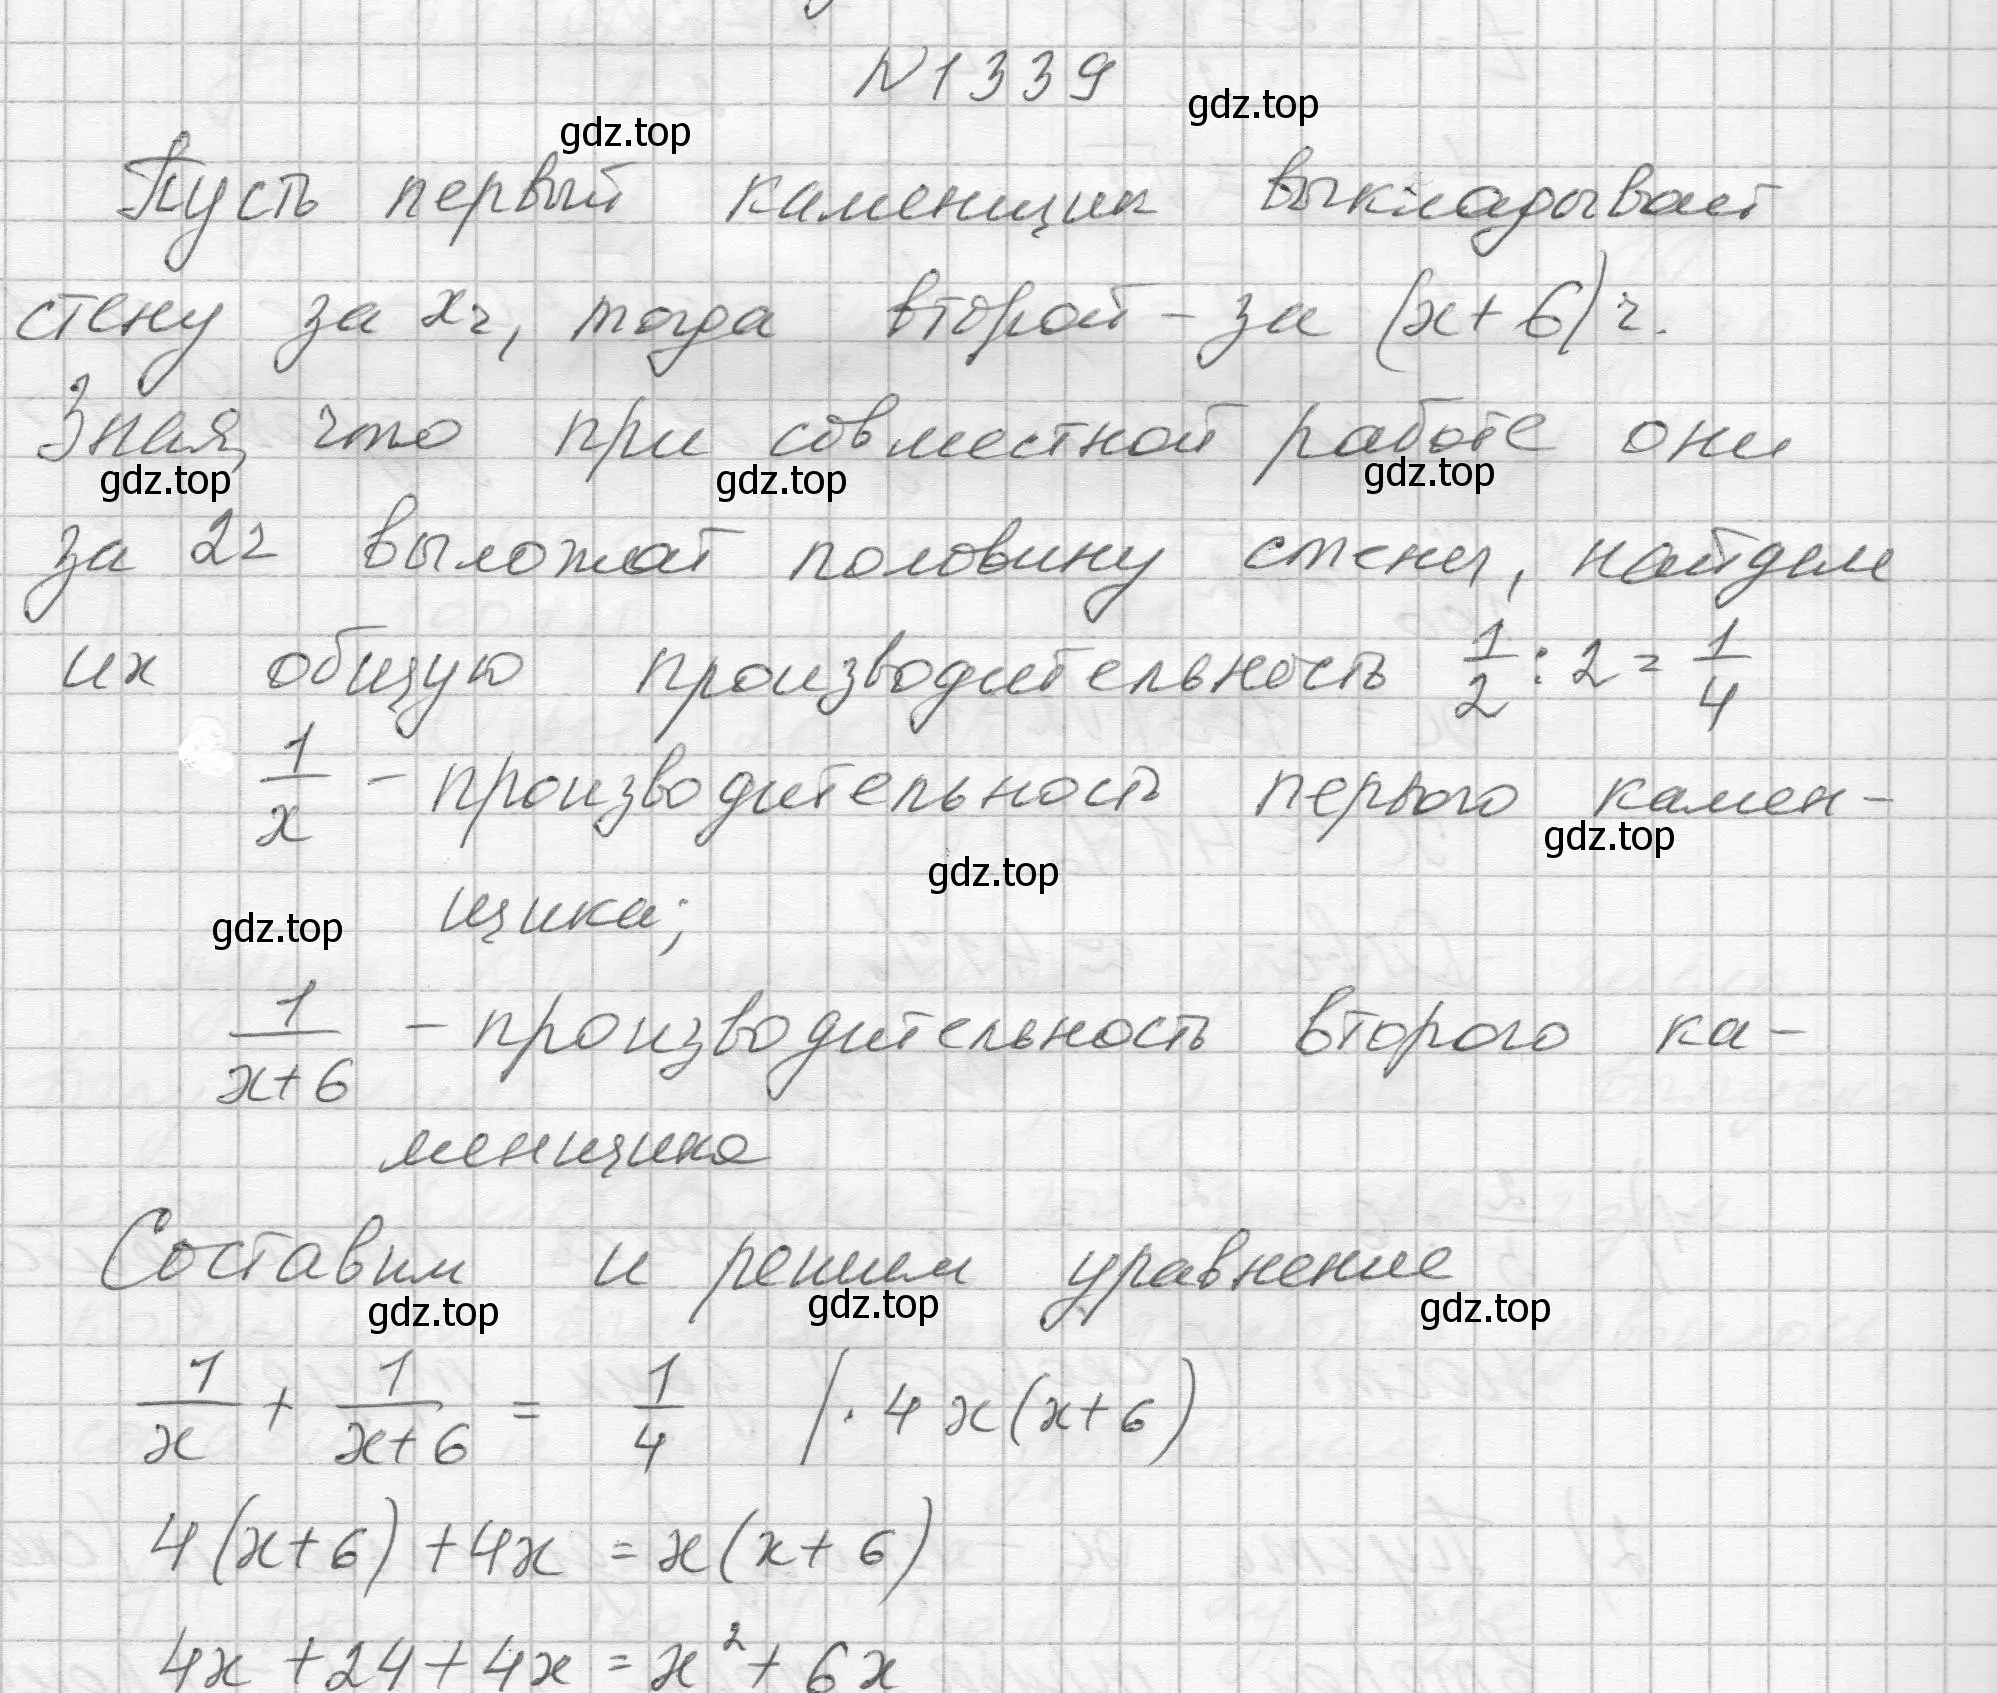 N1339
gdz.top
gdz.top
Пусть первый каменщик выкладывает
стену за xч, тогда второй - за (x+6)ч.
Зная, что при совместной работе они
gdz.top gdz.top gdz.top
за 2ч выложат половину стены, найдем
их общую производительность 1/2 : 2 = 1/4
1/x - производительность первого камен-
gdz.top
gdz.top
gdz.top
щика;
1/(x+6) - производительность второго ка-
менщика
Составим и решим уравнение
gdz.top gdz.top gdz.top
1/x + 1/(x+6) = 1/4 | · 4x(x+6)
4(x+6)+4x = x(x+6)
4x+24+4x = x²+6x